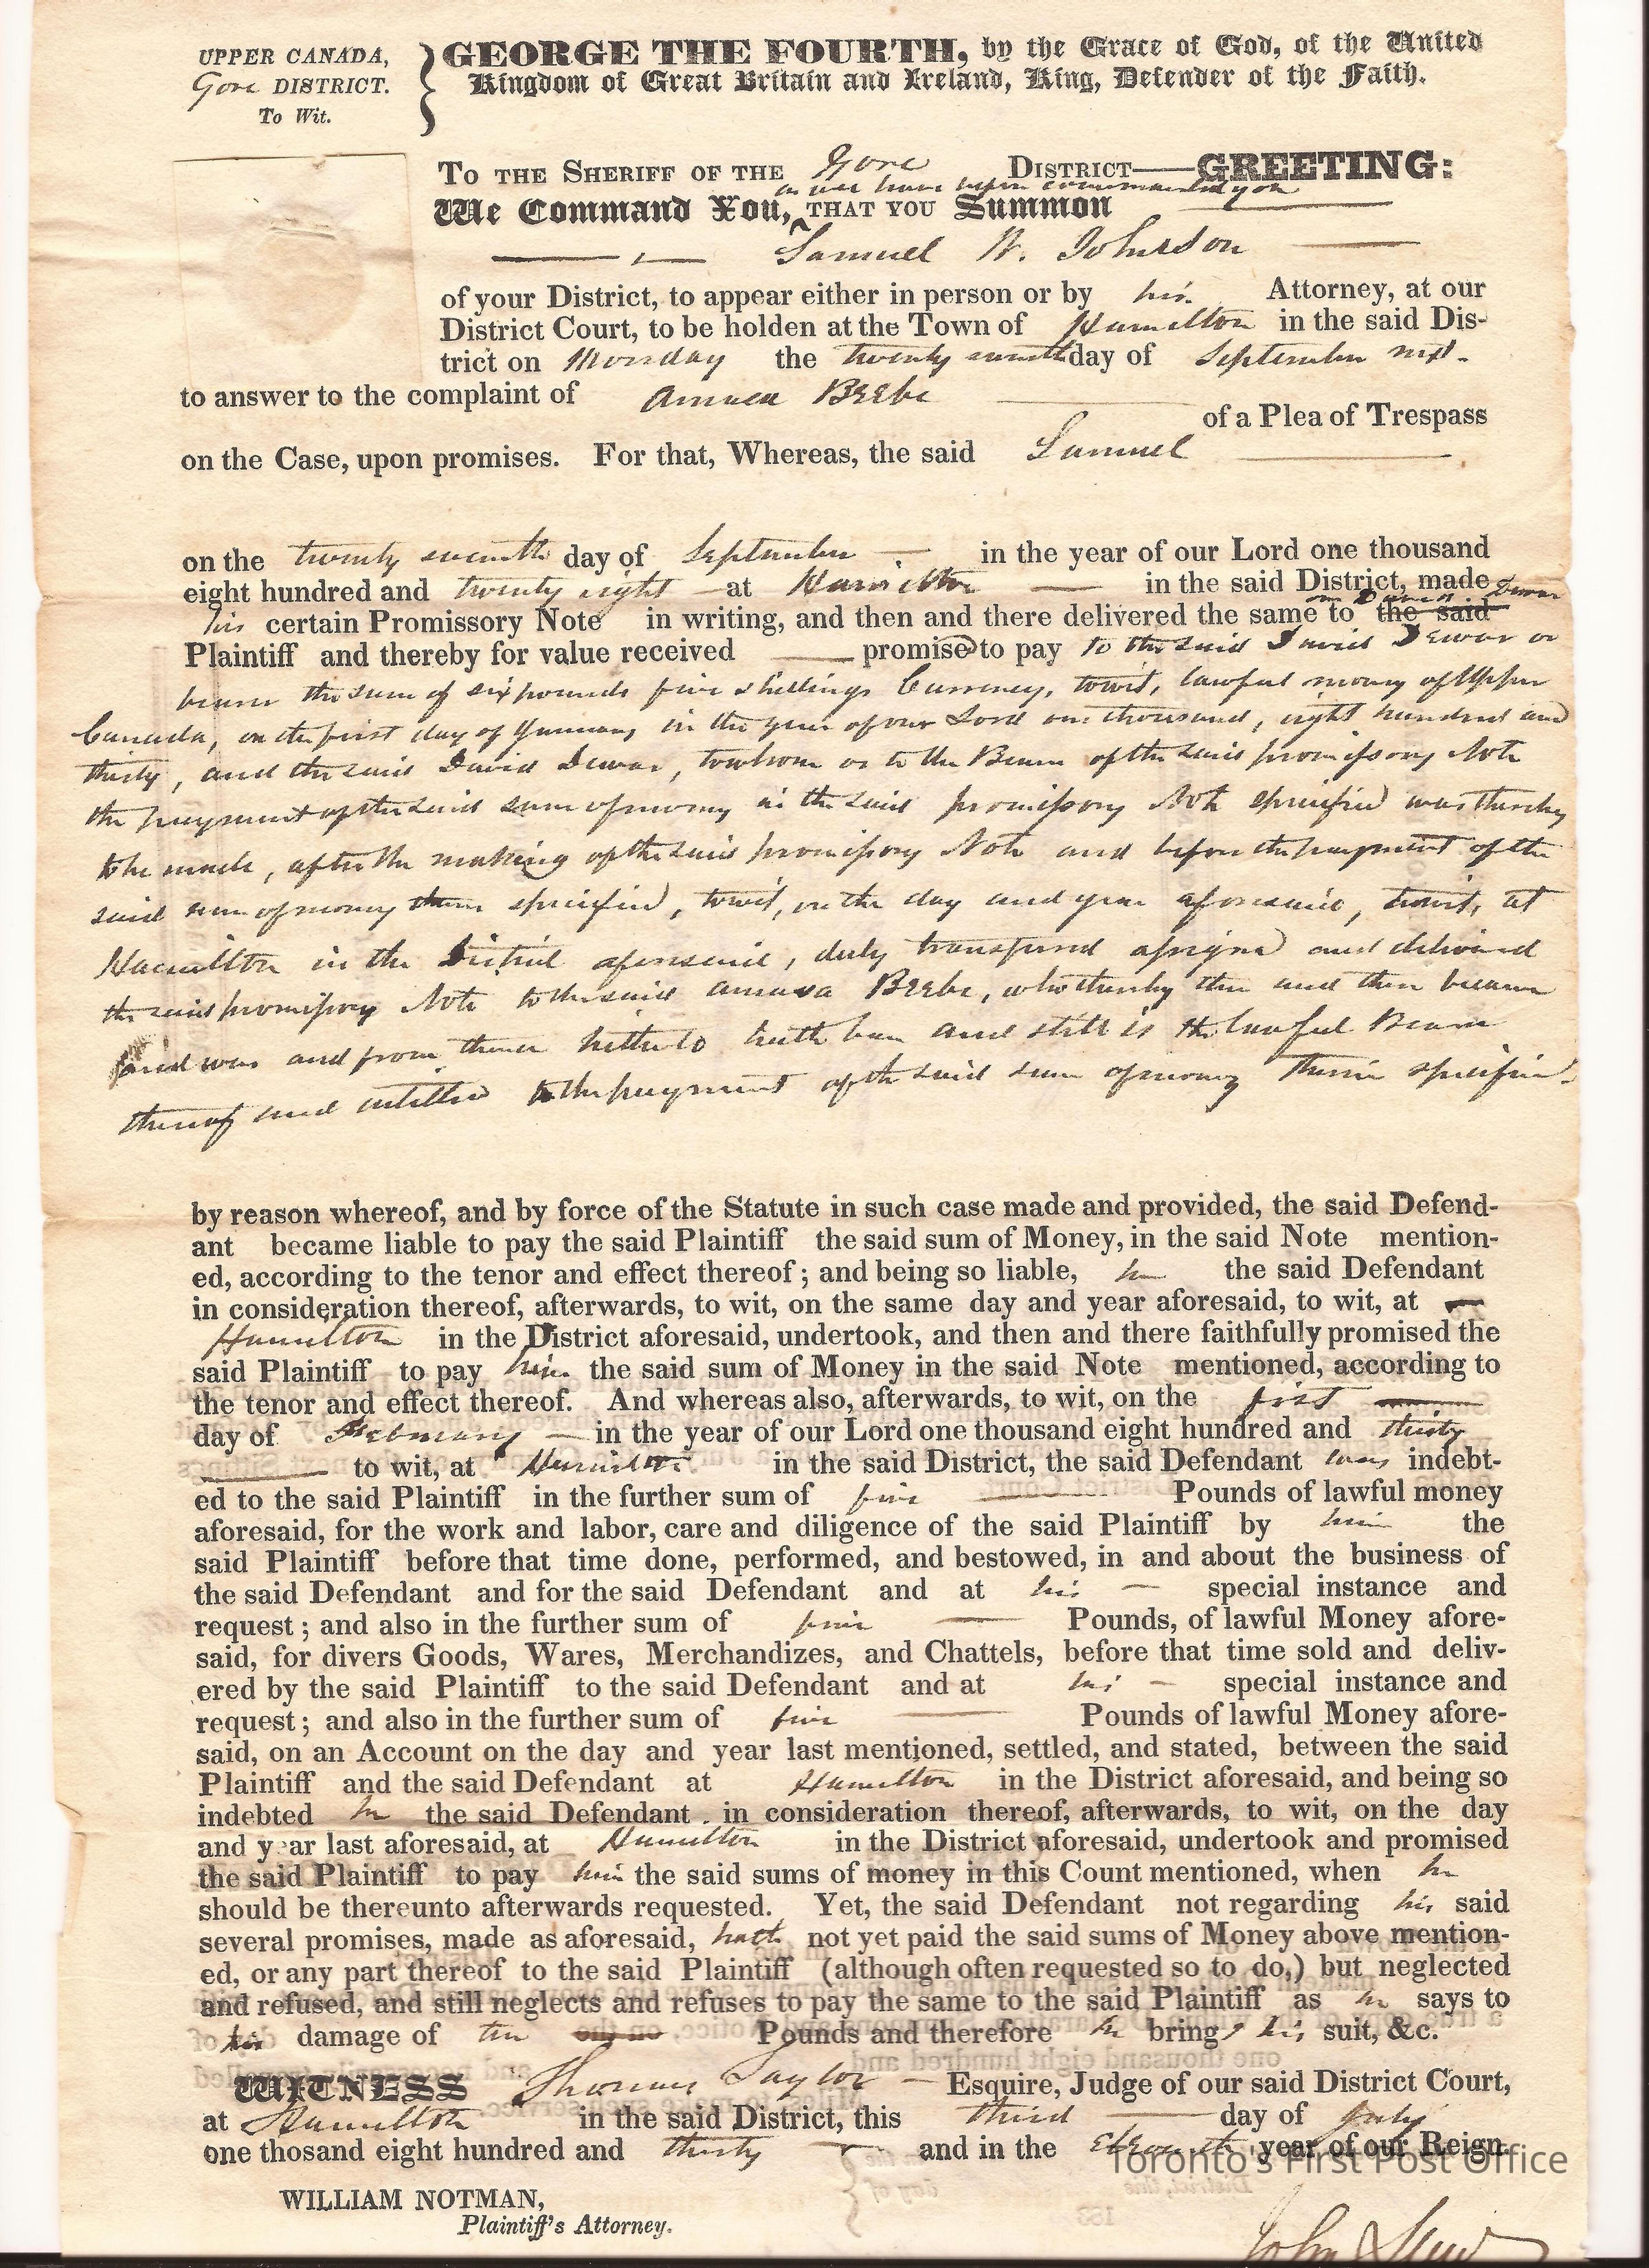 UPPER CANADA,
Gore DISTRICT.
To Wit.
GEORGE THE FOURTH, by the Grace of God, of the United
Kingdom of Great Britain and Ireland, King, Defender of the Faith.
TO THE SHERIFF OF THE Gore DISTRICT—GREETING:
as we have before commanded you
We Command You, THAT YOU Summon
Samuel W. Johnson
of your District, to appear either in person or by his Attorney, at our
District Court, to be holden at the Town of Hamilton in the said Dis-
trict on Monday the twenty seventh day of September next.
to answer to the complaint of Amasa Beebe
of a Plea of Trespass
on the Case, upon promises. For that, Whereas, the said Samuel
on the twenty seventh day of September in the year of our Lord one thousand
eight hundred and twenty eight at Hamilton in the said District, made
one David Dewar
his certain Promissory Note in writing, and then and there delivered the same to the said
Plaintiff and thereby for value received promise to pay to the said David Dewar or
bearer the sum of six pounds five shillings Currency, towit, lawful money of Upper
Canada, on the first day of January in the year of our Lord one thousand, eight hundred and
thirty, and the said David Dewar, to whom or to the Bearer of the said promissory Note
the payment of the said sum of money in the said promissory Note specified was thereby
to be made, after the making of the said promissory Note and before the payment of the
said sum of money therein specified, towit, on the day and year aforesaid, towit, at
Hamilton in the District aforesaid, duly transferred assigned and delivered
the said promissory Note to the said Amasa Beebe, who thereby then and there became
and was and from thence hitherto hath been and still is the lawful Bearer
thereof and entitled to the payment of the said sum of money therein specified.
by reason whereof, and by force of the Statute in such case made and provided, the said Defend-
ant became liable to pay the said Plaintiff the said sum of Money, in the said Note mention-
ed, according to the tenor and effect thereof; and being so liable, he the said Defendant
in consideration thereof, afterwards, to wit, on the same day and year aforesaid, to wit, at
Hamilton in the District aforesaid, undertook, and then and there faithfully promised the
said Plaintiff to pay him the said sum of Money in the said Note mentioned, according to
the tenor and effect thereof. And whereas also, afterwards, to wit, on the first
day of February in the year of our Lord one thousand eight hundred and thirty
to wit, at Hamilton in the said District, the said Defendant was indebt-
ed to the said Plaintiff in the further sum of five Pounds of lawful money
aforesaid, for the work and labor, care and diligence of the said Plaintiff by him the
said Plaintiff before that time done, performed, and bestowed, in and about the business of
the said Defendant and for the said Defendant and at his special instance and
request; and also in the further sum of five Pounds, of lawful Money afore-
said, for divers Goods, Wares, Merchandizes, and Chattels, before that time sold and deliv-
ered by the said Plaintiff to the said Defendant and at his special instance and
request; and also in the further sum of five Pounds of lawful Money afore-
said, on an Account on the day and year last mentioned, settled, and stated, between the said
Plaintiff and the said Defendant at Hamilton in the District aforesaid, and being so
indebted he the said Defendant in consideration thereof, afterwards, to wit, on the day
and year last aforesaid, at Hamilton in the District aforesaid, undertook and promised
the said Plaintiff to pay him the said sums of money in this Count mentioned, when he
should be thereunto afterwards requested. Yet, the said Defendant not regarding his said
several promises, made as aforesaid, hath not yet paid the said sums of Money above mention-
ed, or any part thereof to the said Plaintiff (although often requested so to do,) but neglected
and refused, and still neglects and refuses to pay the same to the said Plaintiff as he says to
his damage of ten Pounds and therefore he brings his suit, &c.
WITNESS Thomas Taylor Esquire, Judge of our said District Court,
at Hamilton in the said District, this third day of July
one thosand eight hundred and thirty and in the Eleventh year of our Reign.
Toronto's First Post Office
WILLIAM NOTMAN,
Plaintiff's Attorney.